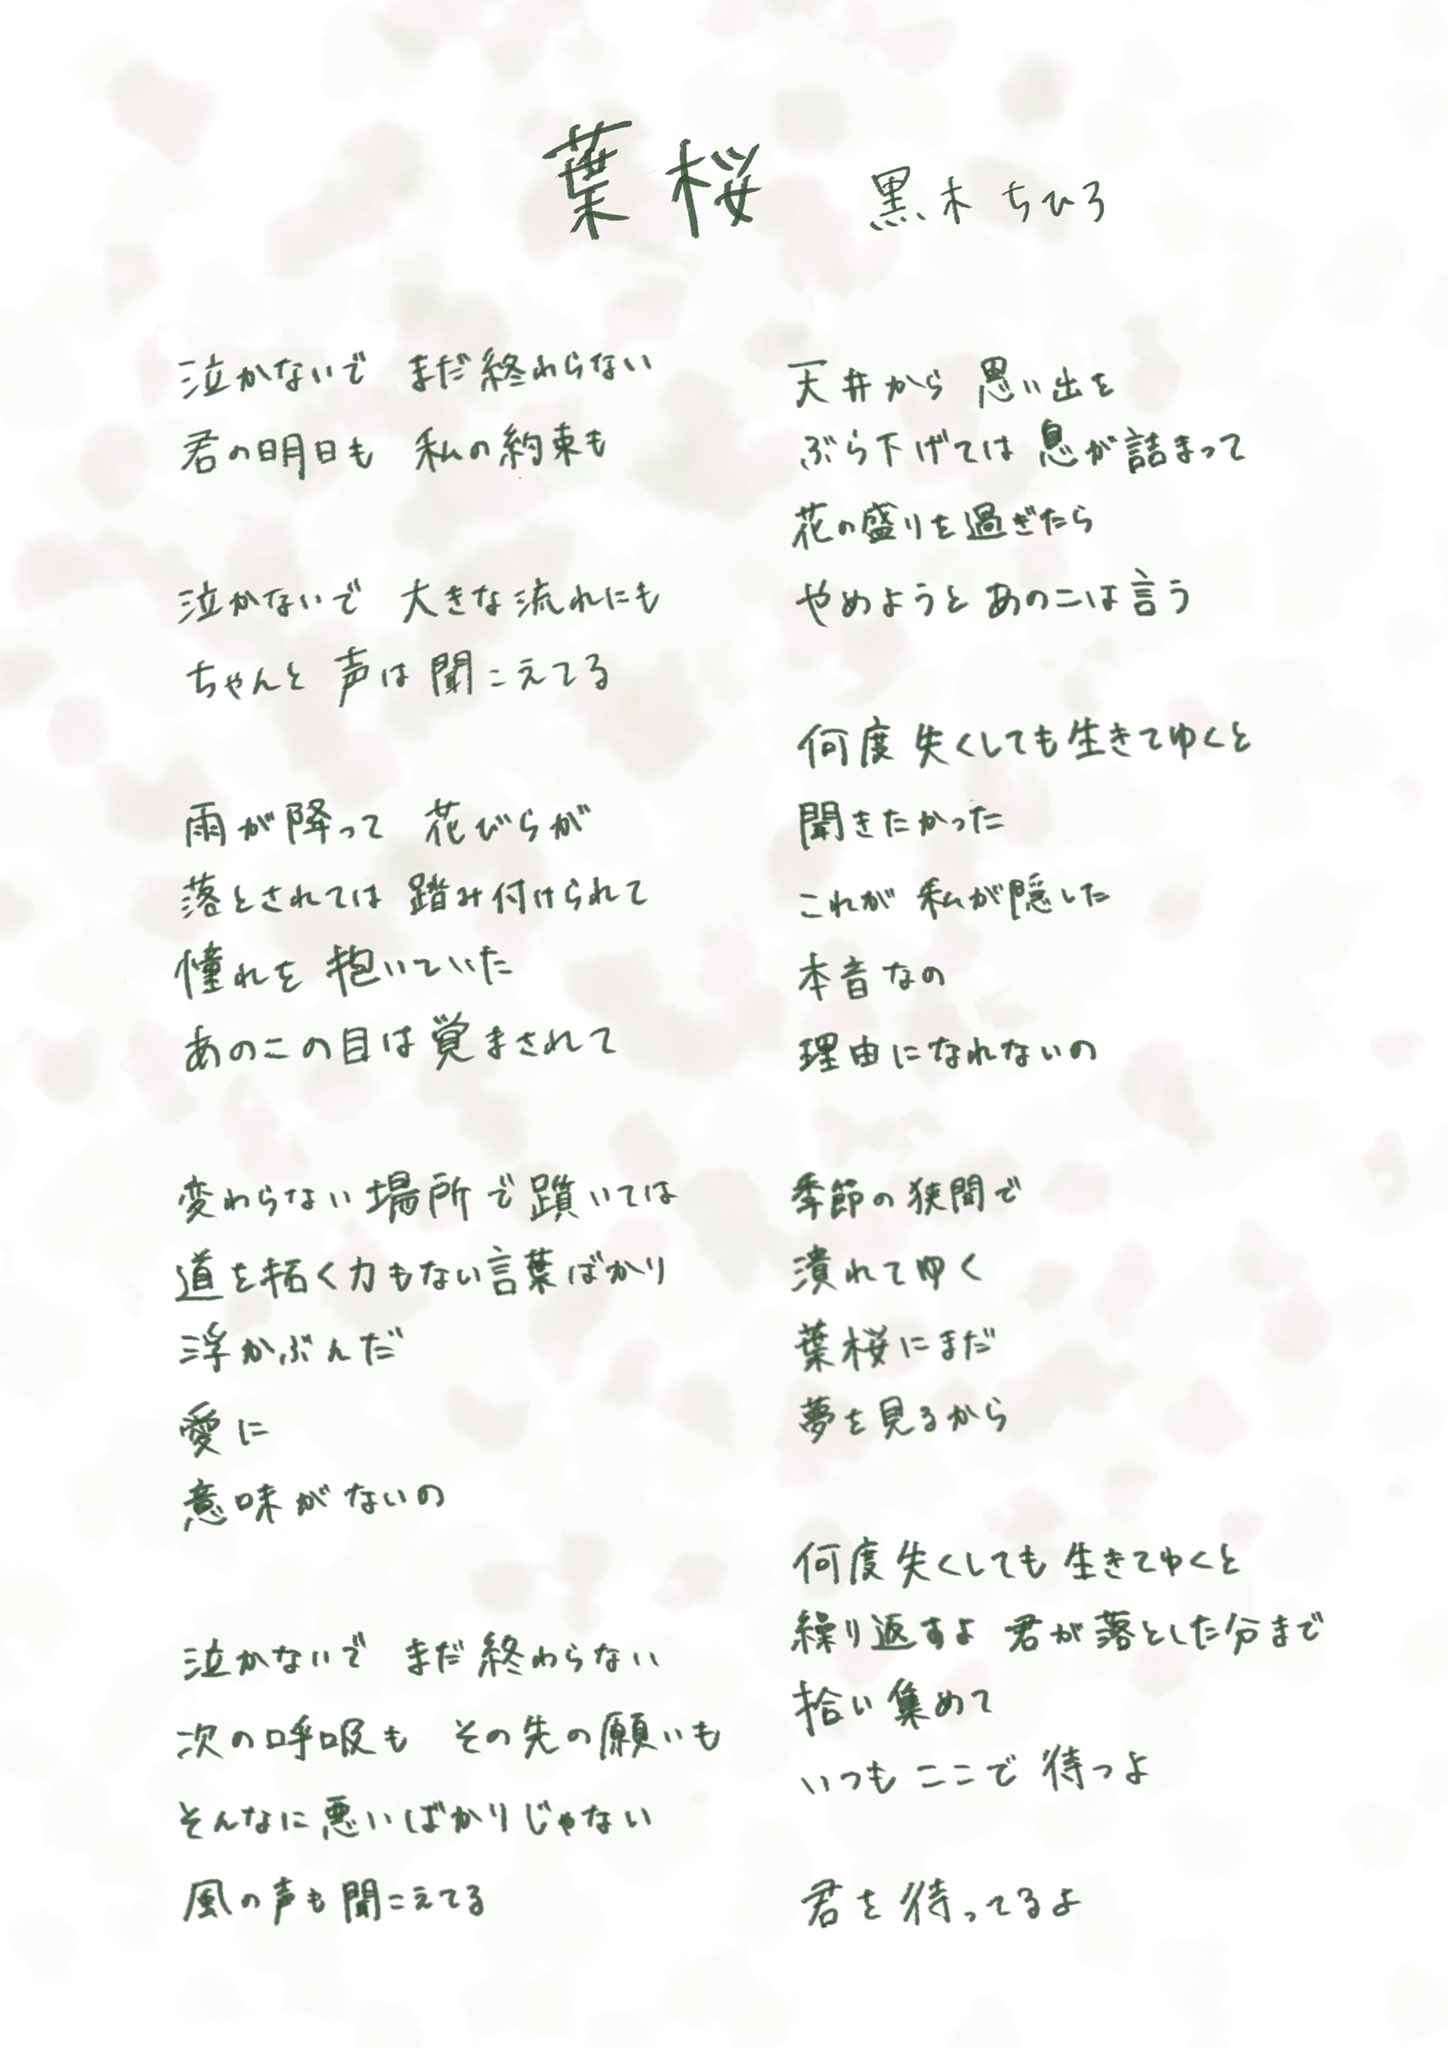 葉桜 黒木ちひろ
泣かないで まだ終わらない
君の明日も 私の約束も
泣かないで 大きな流れにも
ちゃんと 声は 聞こえてる
雨が降って 花びらが
落とされては 踏み付けられて
憧れを 抱いていた
あのこの目は覚まされて
変わらない場所で躓いては
道を拓く力もない言葉ばかり
浮かぶんだ
愛に
意味がないの
泣かないで まだ終わらない
次の呼吸も その先の願いも
そんなに悪いばかりじゃない
風の声も聞こえてる
天井から 思い出を
ぶら下げては 息が詰まって
花の盛りを過ぎたら
やめようと あのこは言う
何度失くしても生きてゆくと
聞きたかった
これが 私が隠した
本音なの
理由になれないの
季節の狭間で
潰れてゆく
葉桜にまだ
夢を見るから
何度失くしても 生きてゆくと
繰り返すよ 君が落とした分まで
拾い集めて
いつも ここで 待つよ
君を待ってるよ